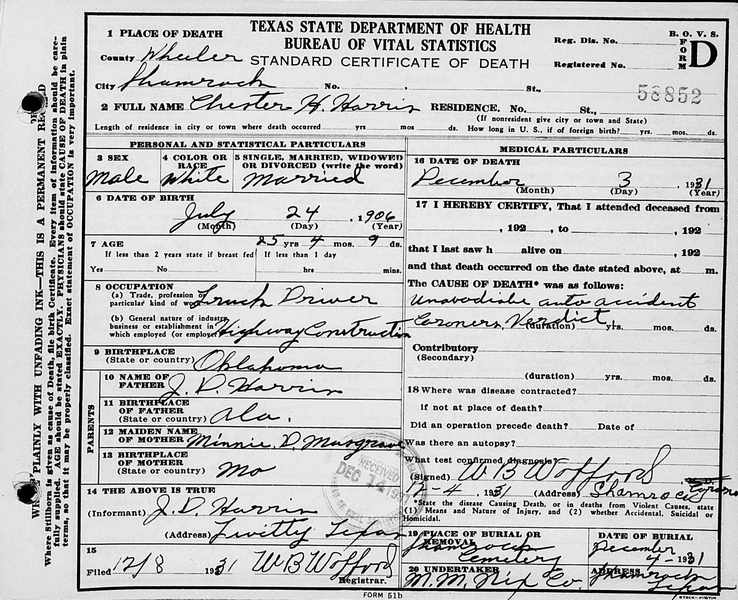 TEXAS STATE DEPARTMENT OF HEALTH
BUREAU OF VITAL STATISTICS
STANDARD CERTIFICATE OF DEATH
B. O. V. S.
FORM D
Reg. Dis. No.
Registered No.
58852
WRITE PLAINLY WITH UNFADING INK—THIS IS A PERMANENT RECORD
Where Stillborn is given as cause of Death, file birth Certificate. Every item of information should be carefully supplied. AGE should be stated EXACTLY. PHYSICIANS should state CAUSE OF DEATH in plain terms, so that it may be properly classified. Exact statement of OCCUPATION is very important.
1 PLACE OF DEATH
County Wheeler
City Shamrock No. St.,
2 FULL NAME Chester H. Harris RESIDENCE. No. St.,
(If nonresident give city or town and State)
Length of residence in city or town where death occurred yrs mos ds. How long in U. S., if of foreign birth? yrs. mos. ds.
PERSONAL AND STATISTICAL PARTICULARS
3 SEX Male
4 COLOR OR RACE White
5 SINGLE, MARRIED, WIDOWED OR DIVORCED (write the word) Married
6 DATE OF BIRTH
July 24 , 1906
(Month) (Day) (Year)
7 AGE 25 yrs 4 mos. 9 ds.
If less than 2 years state if breast fed If less than 1 day
Yes No hrs. min.
8 OCCUPATION
(a) Trade, profession or particular kind of work Truck Driver
(b) General nature of industry, business or establishment in which employed (or employer) Highway Construction
9 BIRTHPLACE
(State or country) Oklahoma
PARENTS
10 NAME OF FATHER J. D. Harris
11 BIRTHPLACE OF FATHER
(State or country) Ala.
12 MAIDEN NAME OF MOTHER Minnie D. Musgrave
13 BIRTHPLACE OF MOTHER
(State or country) Mo
14 THE ABOVE IS TRUE
(Informant) J. D. Harris
(Address) Twitty Texas
15
Filed 12/8 1931 W B Wofford
Registrar.
RECEIVED
DEC 14
MEDICAL PARTICULARS
16 DATE OF DEATH
December 3 , 1931
(Month) (Day) (Year)
17 I HEREBY CERTIFY, That I attended deceased from
, 192 , to , 192
that I last saw h alive on , 192
and that death occurred on the date stated above, at m.
The CAUSE OF DEATH* was as follows:
Unavodiabe auto accident
Coroners Verdict
(duration) yrs. mos. ds.
Contributory
(Secondary)
(duration) yrs. mos. ds.
18 Where was disease contracted?
If not at place of death?
Did an operation precede death? Date of
Was there an autopsy?
What test confirmed diagnosis?
(Signed) W B Wofford
12-4, 1931 (Address) Shamrock
*State the disease Causing Death, or in deaths from Violent Causes, state (1) Means and Nature of Injury, and (2) whether Accidental, Suicidal or Homicidal.
19 PLACE OF BURIAL OR REMOVAL
Shamrock Cemetery
DATE OF BURIAL
December 4-1931
20 UNDERTAKER
M. M. Nix Co. Shamrock Texas
FORM 51b